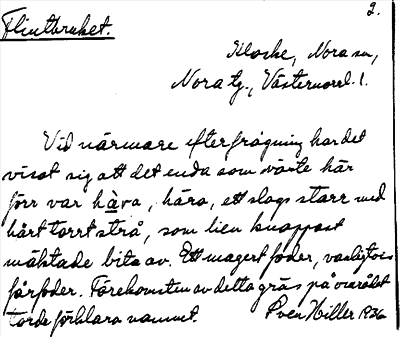 2.
Flintbruket.
Klocke, Nora sn,
Nora tg., Västernorrl. l.
Vid närmare efterfrågning har det
visat sig att det enda som växte här
förr var hàva, håra, ett slags starr med
hårt torrt strå, som lien knappast
mäktade bita av. Ett magert foder, vanligtvis
fårfoder. Förekomsten av detta gräs på området
torde förklara namnet. Sven Hiller 1936